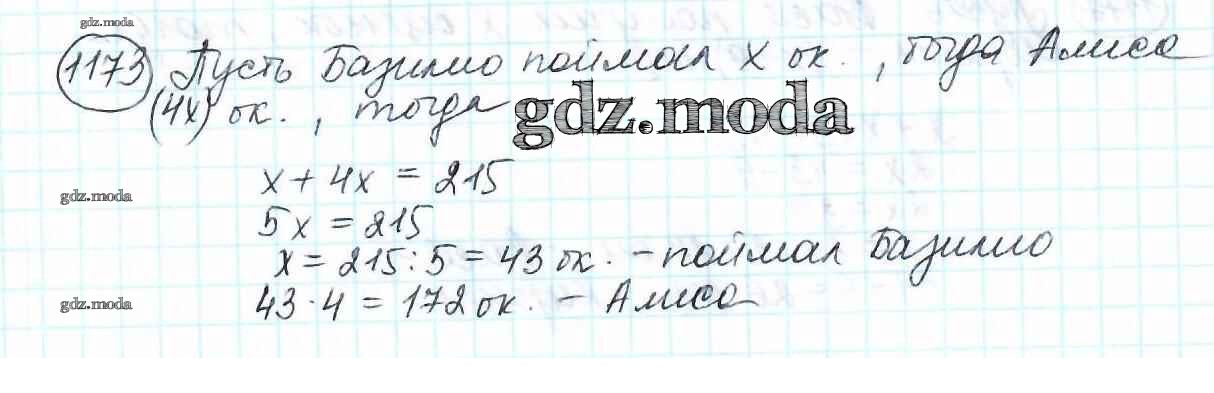 gdz.moda
1173 Пусть Базилио поймал x ок., тогда Алиса
(4x) ок., тогда
gdz.moda
x + 4x = 215
gdz.moda
5x = 215
x = 215 : 5 = 43 ок. - поймал Базилио
43 · 4 = 172 ок. - Алиса
gdz.moda